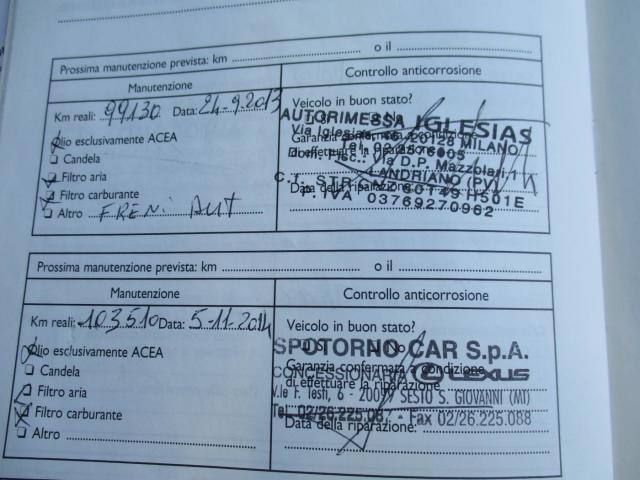 Prossima manutenzione prevista: km ........ o il ........
Manutenzione
Controllo anticorrosione
Km reali: 99130 Data: 24-9.2013
Olio esclusivamente ACEA
Candela
Filtro aria
Filtro carburante
Altro FRENI AUT
Veicolo in buon stato?
AUTORIMESSA IGLESIAS
Via Iglesias, 20128 MILANO
Garanzia confermata a condizione
di effettuare la riparazione
Dom. Fisc.: Via D.P. Mazzolari, 1
LANDRIANO
Data della riparazione
P. IVA 03769270962
Prossima manutenzione prevista: km ........ o il ........
Manutenzione
Controllo anticorrosione
Km reali: 103510 Data: 5-11-2014
Olio esclusivamente ACEA
Candela
Filtro aria
Filtro carburante
Altro ........
Veicolo in buon stato?
SPOTORNO CAR S.p.A.
Garanzia confermata a condizione
CONCESSIONARIA LEXUS
di effettuare la riparazione
V.le F. Testi, 6 - 20099 SESTO S. GIOVANNI (MI)
Tel. 02/26.225.087 - Fax 02/26.225.088
Data della riparazione: ........